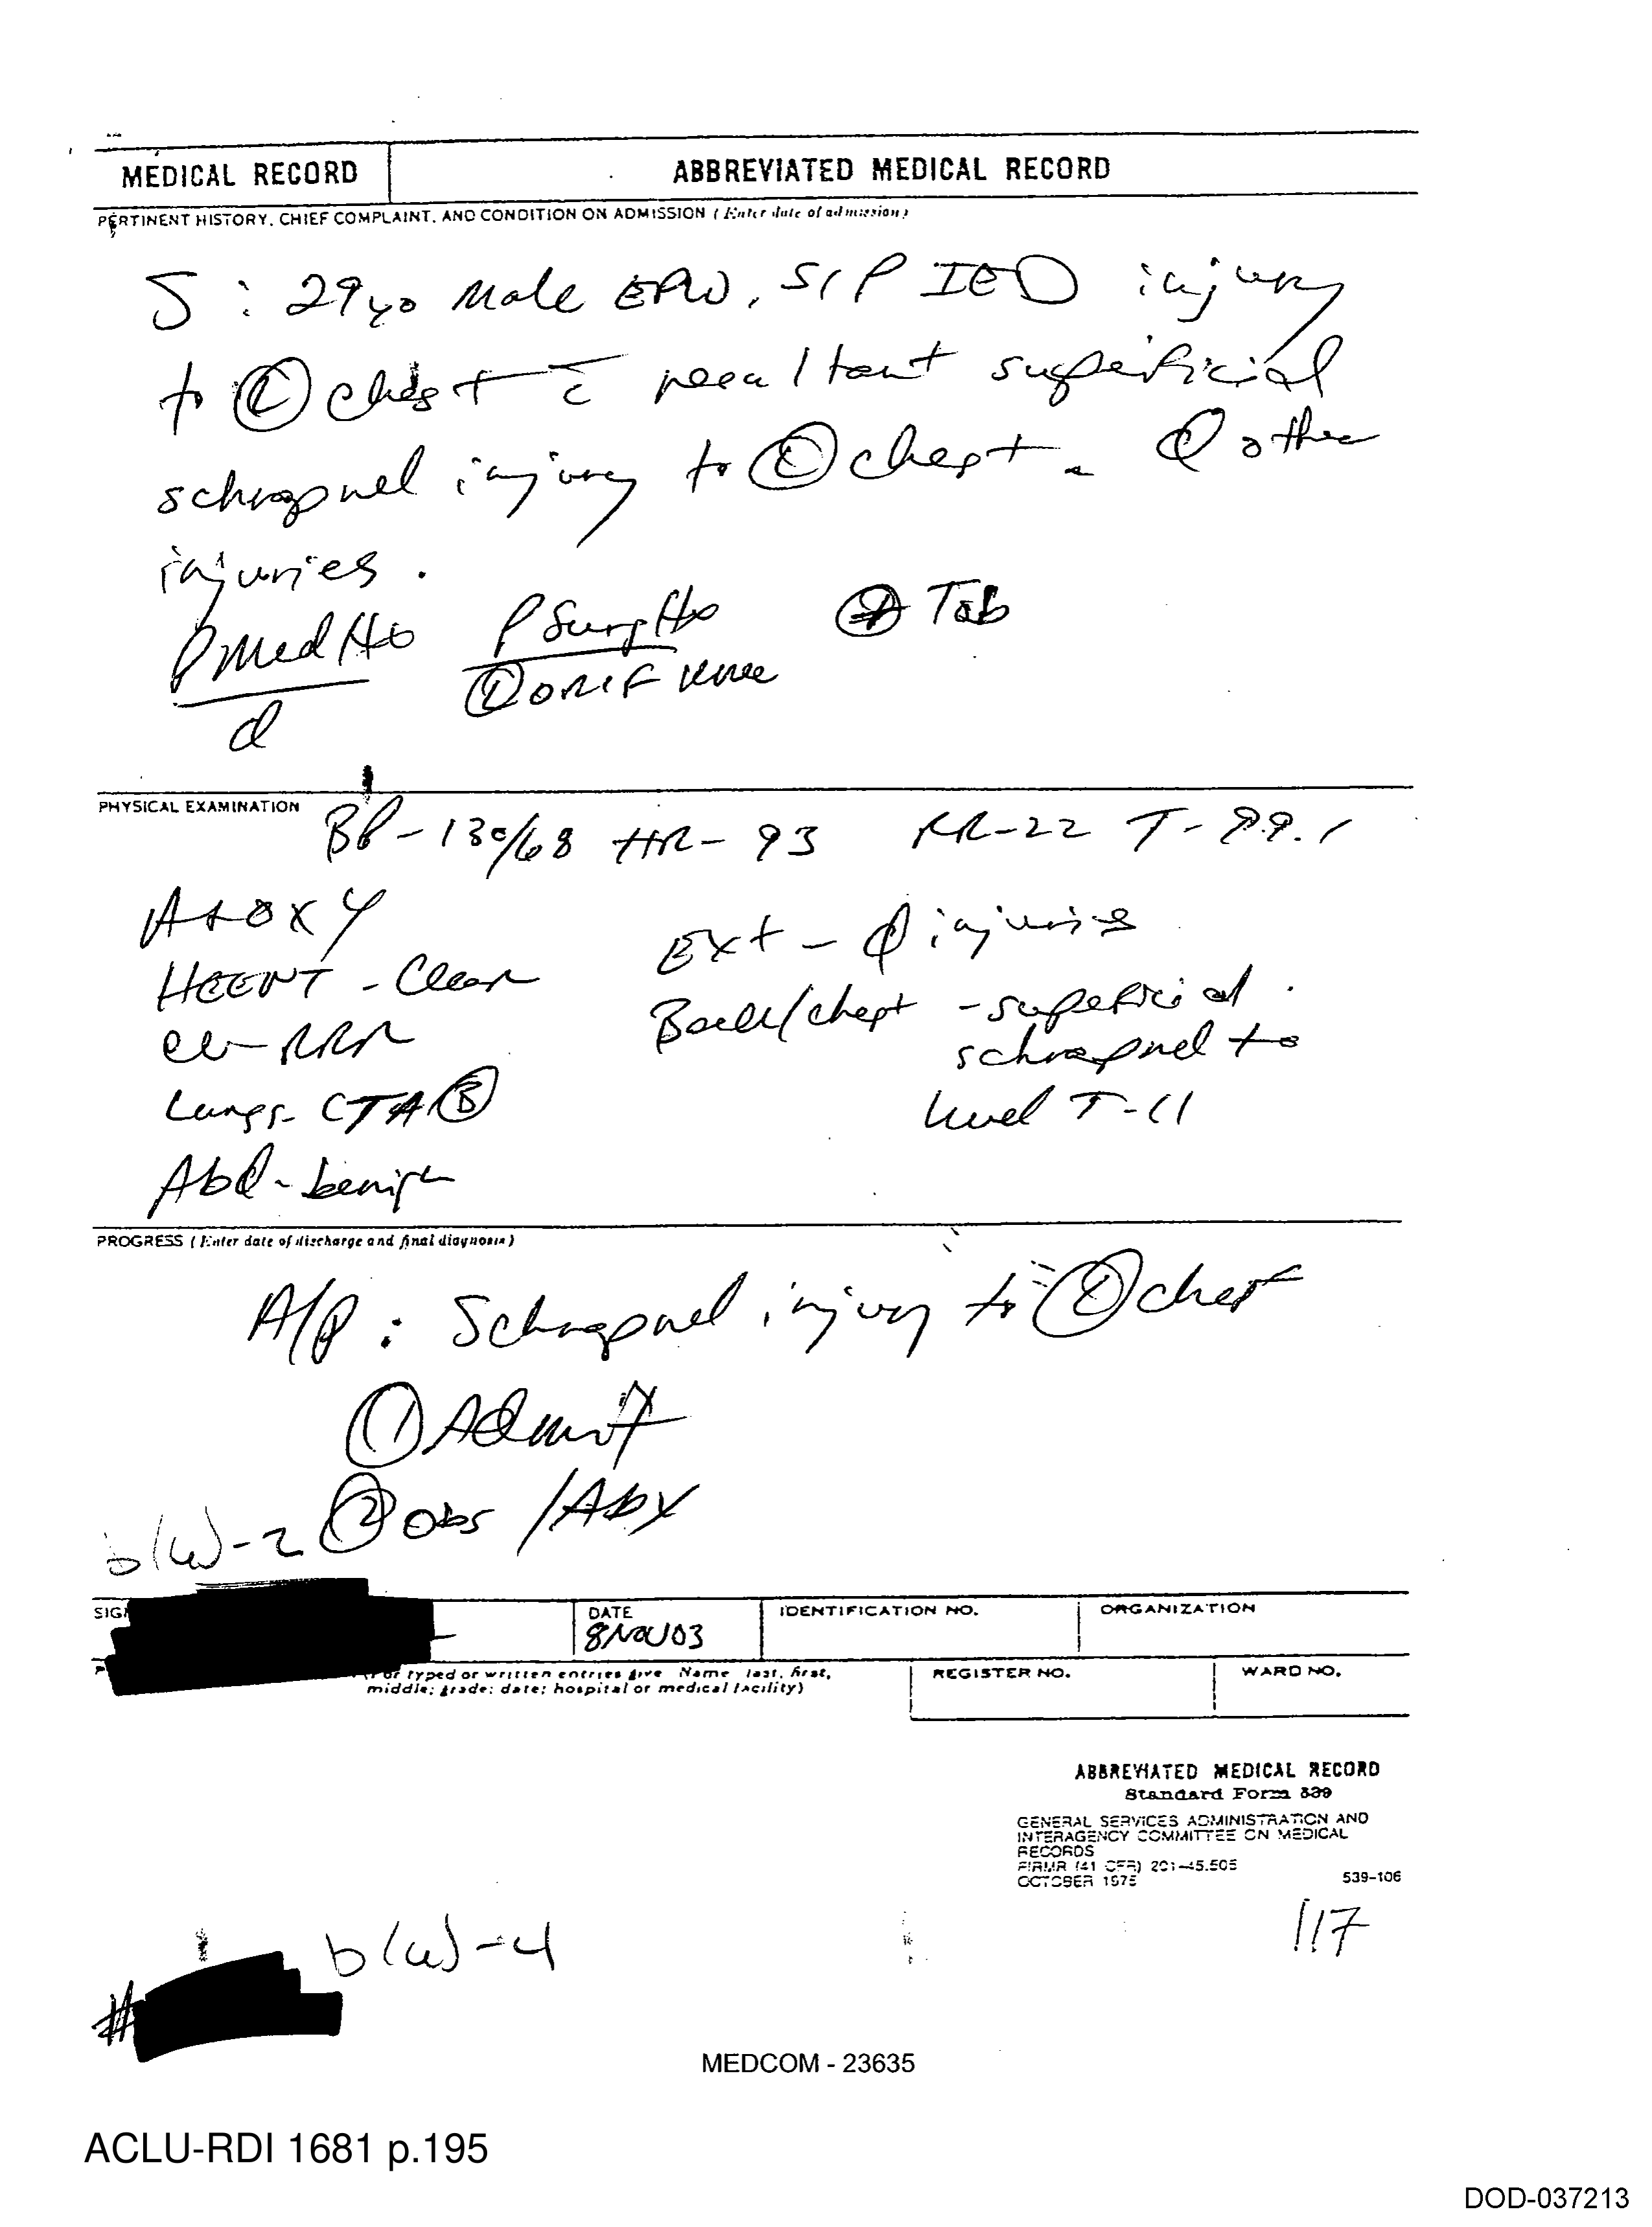 MEDICAL RECORD
ABBREVIATED MEDICAL RECORD
PERTINENT HISTORY, CHIEF COMPLAINT, AND CONDITION ON ADMISSION (Enter date of admission)
S: 29 yo Male EPW, S/P IED injury
to Ⓛ chest c̄ resultant superficial
schrapnel injury to Ⓛ chest. Ø other
injuries.
PMed Hx PSurg Hx ⊕ Tob
Ø Ⓛ ORIF Knee
PHYSICAL EXAMINATION
BP-130/68 HR-93 RR-22 T-99.1
A+OX4
Ext - Ø injuries
HEENT - Clear
Back/chest - superficial
CV-RRR
schrapnel to
Lungs- CTA Ⓑ
level T-11
Abd-benign
PROGRESS (Enter date of discharge and final diagnosis)
A/P: Schrapnel injury to Ⓛ chest
① Admit
② Obs /Abx
b(6)-2
SIG
DATE
8 NOV 03
IDENTIFICATION NO.
ORGANIZATION
or typed or written entries give Name last, first,
middle; grade; date; hospital or medical facility)
REGISTER NO.
WARD NO.
ABBREVIATED MEDICAL RECORD
Standard Form 539
GENERAL SERVICES ADMINISTRATION AND
INTERAGENCY COMMITTEE ON MEDICAL
RECORDS
FIRMR (41 CFR) 201-45.505
OCTOBER 1975
539-106
117
b(6)-4
#
MEDCOM - 23635
ACLU-RDI 1681 p.195
DOD-037213